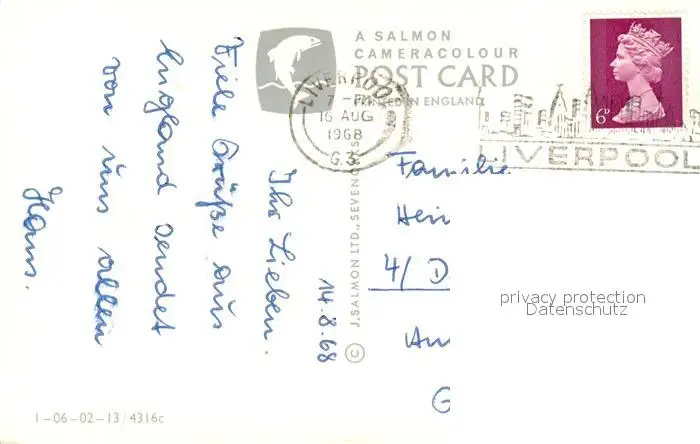 A SALMON
CAMERACOLOUR
POST CARD
PRINTED IN ENGLAND
LIVERPOOL
7 - PM
16 AUG
1968
G.S.
LIVERPOOL
6D
© J. SALMON LTD., SEVENO
14.8.68
Ihr Lieben.
Viele Grüße aus
England sendet
von uns allen
Hans.
Familie
Hein
4/ D
An
G
privacy protection
Datenschutz
1-06-02-13/4316c